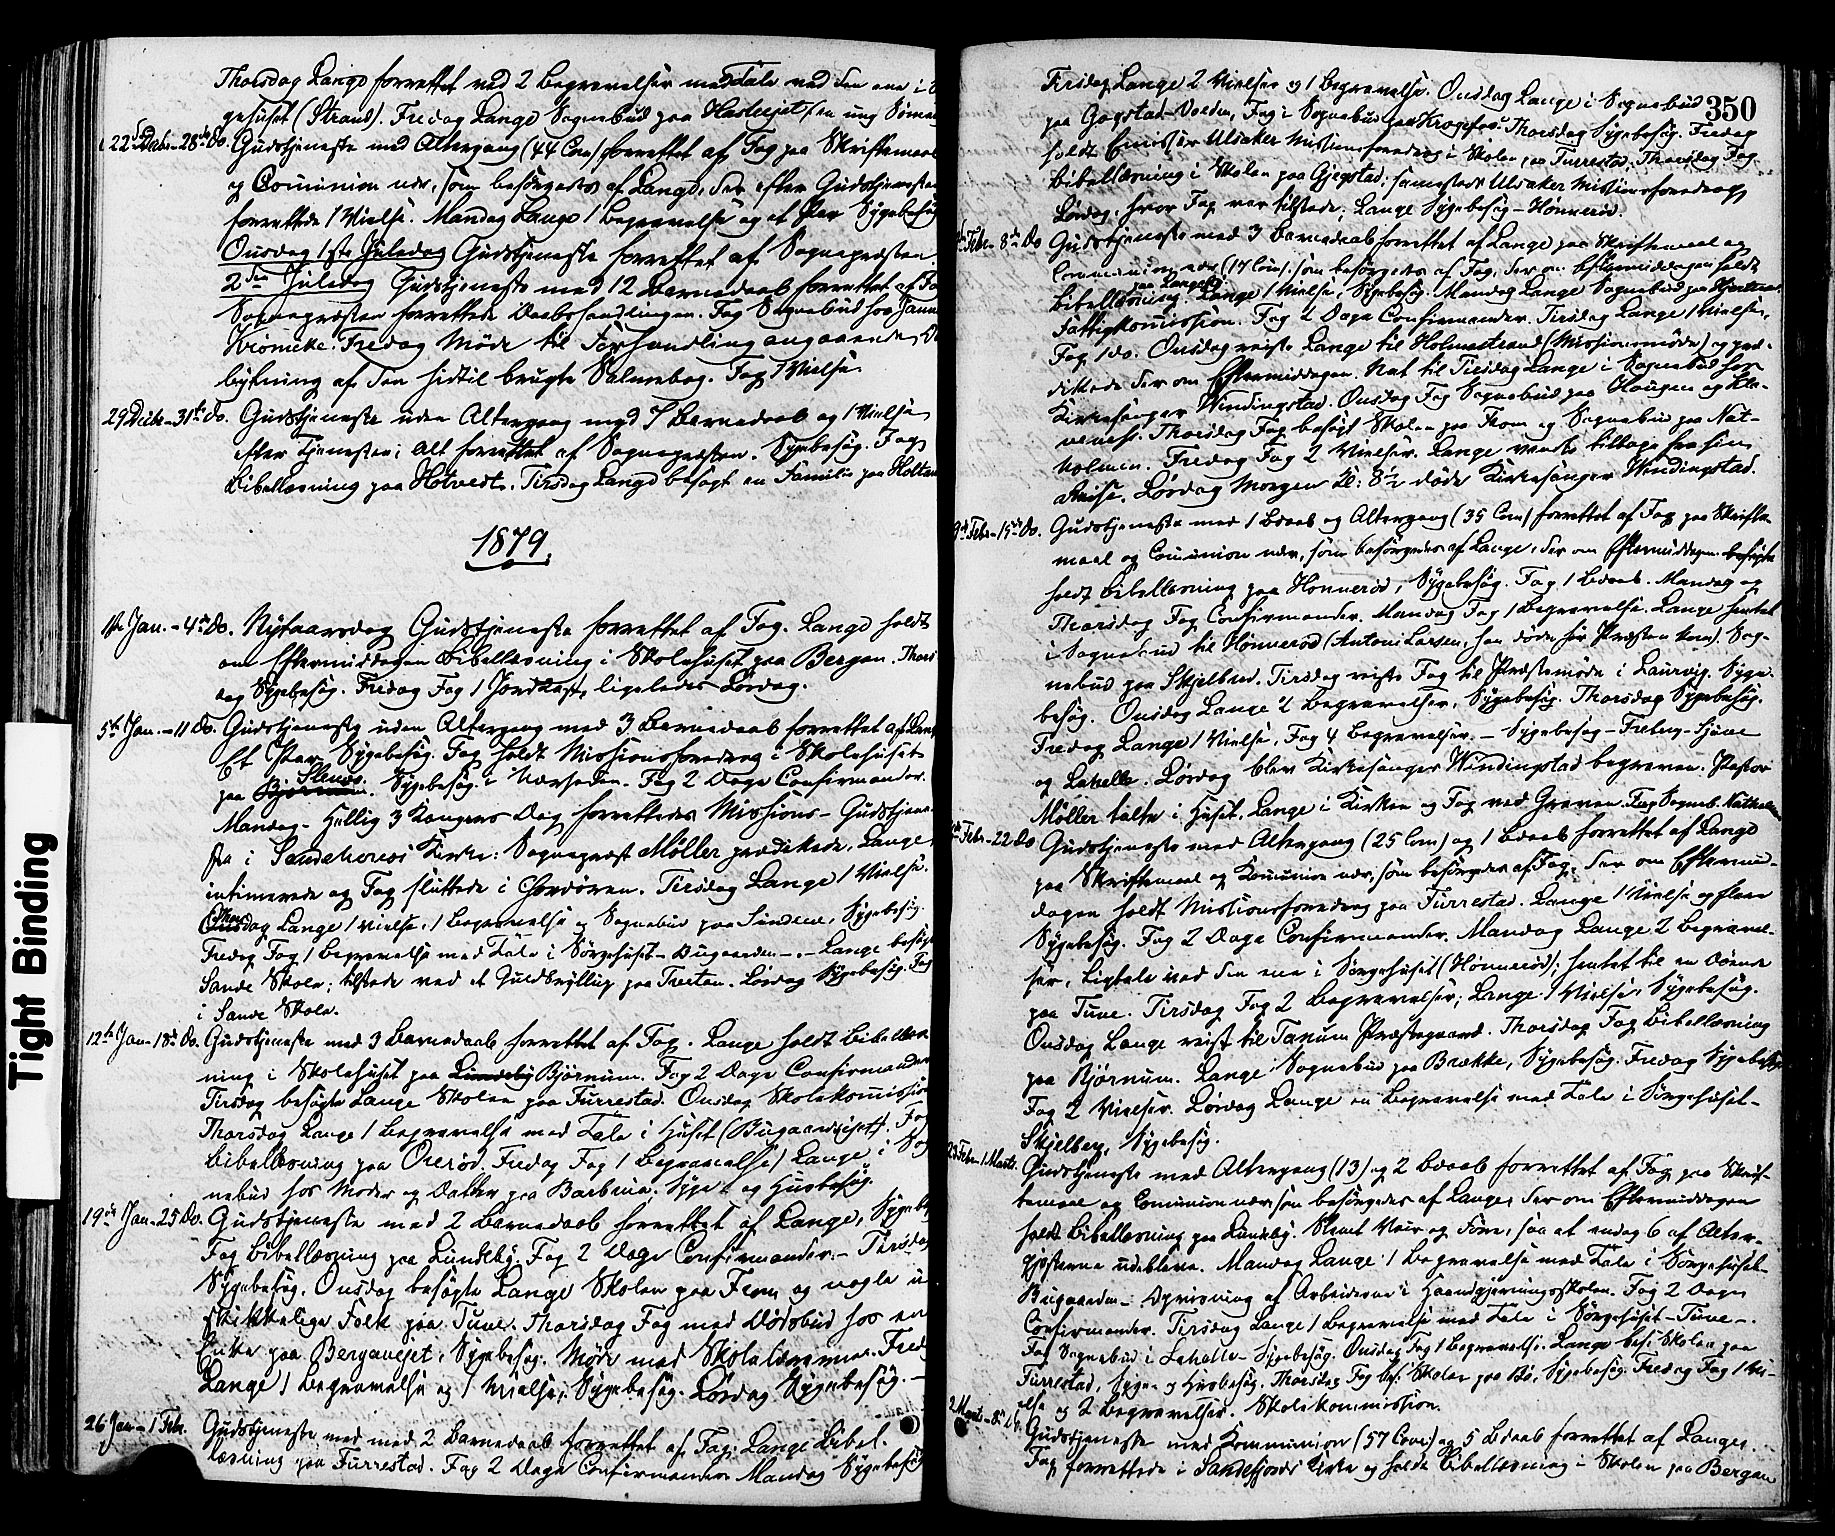 Thorsdag Lange forrettet ved 2 Begravelser med Tale ved den ene i
gehuset (Strand). Fredag Lange Sognebud paa en ung
22de Decbr - 28de Do. Gudstjeneste med Altergang (44 Com) forrettet af Fog paa Skriftemaal
og Communion nær, som besørgedes af Lange, der efter Gudstjenesten
forrettede 1 Vielse. Mandag Lange 1 Begravelse og et Par Sygebesøg
Onsdag 1ste Juledag Gudstjeneste forrettet af Sognepræsten
2den Juledag Gudstjeneste med 12 Barnedaab forrettet af Fog
Sognepræsten forrettede Daabshandlingen. Fog Sognebud hos
Fredag Møde til Forhandling angaaende
bytning af den hidtil brugte Salmebog. Fog 1 Vielse
29 Decbr - 31te Do. Gudstjeneste uden Altergang med 7 Barnedaab og 1 Vielse
efter Tjenesten; alt forrettet af Sognepræsten. Sygebesøg. Fog
Bibellæsning paa Hotvedt. Tirsdag Lange besøgt en Familie paa Holtan
1879.
1ste Jan. - 4de Do. Nytaarsdag Gudstjeneste forrettet af Fog. Lange holdt
om Eftermiddagen Bibellæsning i Skolehuset paa Bergan. Thors
dag Sygebesøg. Fredag Fog 1 Jordkast, ligeledes Lørdag.
5te Jan. - 11 Do. Gudstjeneste uden Altergang med 3 Barnedaab forrettet af Lange
Et Par Sygebesøg. Fog holdt Missionsforedrag i Skolehuset
paa Sygebesøg i Nærheden. Fog 2 Dage Confirmander.
Mandag - Hellig 3 Kongers Dag forrettedes Missions-Gudstjene-
ste i Sandeherred Kirke: Sognepræst Møller prædikede, Lange
intimerede og Fog sluttede i Chordøren. Tirsdag Lange 1 Vielse.
Lange 1 Vielse, 1 Begravelse og Sognebud paa Sygebesøg.
Fredag Fog 1 Begravelse med Tale i Sørgehuset - Bugaarden -. Lange besøgt
Sande Skole; tilstede ved et Guldbryllup paa Lørdag Sygebesøg. Fog
i Sande Skole.
12te Jan - 18de Do. Gudstjeneste med 3 Barnedaab forrettet af Fog. Lange holdt Bibellæs
ning i Skolehuset paa Lundeby Bjørnum. Fog 2 Dage Confirmander
Tirsdag besøgte Lange Skolen paa Furrestad. Onsdag Skolekommission
Thorsdag Lange 1 Begravelse med Tale i Huset Fog
Bibellæsning paa Orerød. Fredag Fog 1 Begravelse, Lange i Sog
nebud hos Moder og Datter paa Syge- og Husbesøg.
19de Jan - 25 Do. Gudstjeneste med 2 Barnedaab forrettet af Lange, Sygebesøg
Fog Bibellæsning paa Lundeby. Fog 2 Dage Confirmander. - Tirsdag
Sygebesøg. Onsdag besøgte Lange Skolen paa Fevang og nogle
skikkelige Folk paa Tune. Thorsdag Fog med Dødsbud hos en
Enke paa Sygebesøg. Møde med Skolelærerne. Fred
Lange 1 Begravelse og 1 Vielse; Sygebesøg. Lørdag Sygebesøg. -
26 Jan - 1 Febr. Gudstjeneste med med 2 Barnedaab forrettet af Fog; Lange Bibel-
læsning paa Furrestad. Fog 2 Dage Confirmander Mandag Sygebesøg
Tirsdag Lange 2 Vielser og 1 Begravelse. Onsdag Lange i Sognebud
350
paa Gogstad- Fog i Sognebud Thorsdag Sygebesøg. Fredag
holdt Emissær Ulsaker Missionsforedrag i Skolen paa Furrestad; Thorsdag Fog
Bibellæsning i Skolen paa Gjegstad; sammesteds Ulsaker Missionsforedrag
Lørdag, hvor Fog var tilstede; Lange Sygebesøg - Hønnerød.
Febr - 8de Do Gudstjeneste med 3 Barnedaab forrettet af Lange paa Skriftemaal og
Communion nær (17 Com). som besørgedes af Fog, der om Eftermiddagen holdt
Bibellæsning. Lange 1 Vielse, Sygebesøg. Mandag Lange Sognebud paa
Fattigkomission. Fog 2 Dage Confirmander. Tirsdag Lange 1 Vielse,
Fog 1 do. Onsdag reiste Lange til Holmestrand (Missionsmøde) og præ-
dikede der om Eftermiddagen. Nat til Tirsdag Lange i Sognebud hos
Kirkesanger Windingstad. Onsdag Fog Sognebud paa Haugen og Kla-
venæss. Thorsdag Fog besøgt Skolen paa Fram og Sognebud paa Nat-
holmen. Fredag Fog 2 Vielser. Lange vendte tilbage fra sin
Reise. Lørdag Morgen Kl: 8½ døde Kirkesanger Windingstad.
9de Febr - 15de Do. Gudstjeneste med 1 Bdaab og Altergang (35 Com) forrettet af Fog paa Skrifte-
maal og Communion nær, som besørgedes af Lange, der om Eftermiddagen besøgte
holdt Bibellæsning paa Hønnerød, Sygebesøg. Fog 1 Bdaab. Mandag og
Thorsdag Fog Confirmander. Mandag Fog 1 Begravelse. Lange hentet
i Sognebud til Hønnerød (Antoni Larsen, han døde før Præsten kom). Sog-
nebud paa Skjelbred. Tirsdag reiste Fog til Præstemøde i Laurvig. Syge-
besøg. Onsdag Lange 2 Begravelser, Sygebesøg. Thorsdag Sygebesøg.
Fredag Lange 1 Vielse, Fog 4 Begravelser. - Sygebesøg -
og Lahelle. Lørdag blev Kirkesanger Windingstad begraven. Pastor
Møller talte i Huset. Lange i Kirken og Fog ved Graven. Fog Sogneb. Natholm
Febr - 22 Do Gudstjeneste med Altergang (25 Com) og 1 Bdaab forrettet af Lange
paa Skriftemaal og Komunion nær, som besørgedes af Fog, der om Eftermid-
dagen holdt Missionsforedrag paa Furrestad. Lange 1 Vielse og flere
Sygebesøg. Fog 2 Dage Confirmander. Mandag Lange 2 Begravel-
ser, Ligtale ved den ene i Sørgehuset (Hønnerød); hentet til en Døende
paa Tune. Tirsdag Fog 2 Begravelser; Lange 1 Vielse, Sygebesøg.
Onsdag Lange reist til Tanum Præstegaard. Thorsdag Fog Bibellæsning
paa Bjørnum. Lange Sognebud paa Brække, Sygebesøg. Fredag Sygebesøg
Fog 2 Vielser. Lørdag Lange en Begravelse med Tale i Sørgehuset -
Skjelberg, Sygebesøg.
23 Febr - 1 Marts. Gudstjeneste med Altergang (13) og 2 Bdaab forrettet af Fog paa Skrif-
temaal og Communion nær som besørgedes af Lange, der om Eftermiddagen
holdt Bibellæsning paa Lundeby. Slemt Veir og Føre, saa at endog 6 af Alter-
gjæsterne udebleve. Mandag Lange 1 Begravelse med Tale i Sørgehuset -
Bugaarden - Opvisning af Arbeiderne i Haandgjerningsskolen. Fog 2 Dage
Confirmander. Tirsdag Lange 1 Begravelse med Tale i Sørgehuset - Tune -.
Fog Sognebud i Lahelle - Sygebesøg. Onsdag Fog 1 Begravelse. Lange bes: Skolen paa
Furrestad, Syge- og Husbesøg. Thorsdag Fog bes: Skolen paa Bø, Sygebesøg. Fredag Fog 1 Vi-
else og 2 Begravelser. Skolekommission.
2 Marts - 8de Do. Gudstjeneste med Kommunion (57 Com) og 5 Bdaab forrettet af Lange.
Fog forrettede i Sandefjords Kirke og holdt Bibellæsning i Skolen paa Bergan
Tight Binding